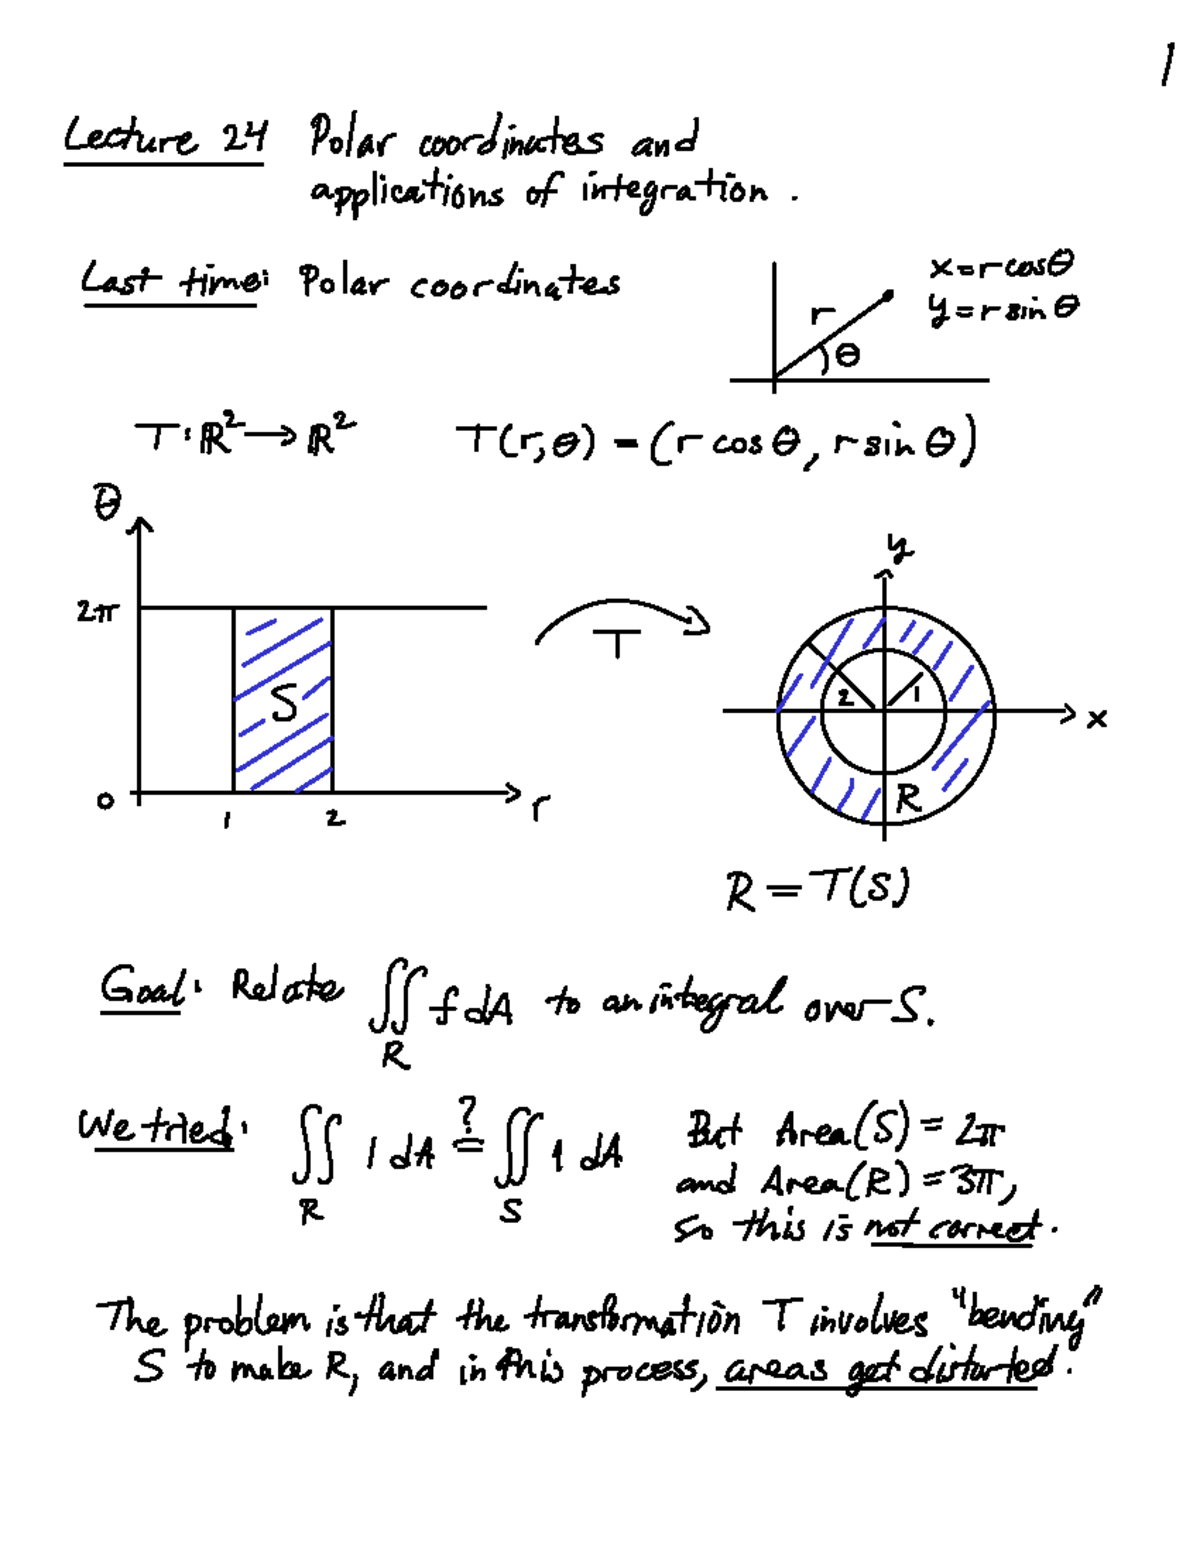 1
Lecture 24 Polar coordinates and
applications of integration.
Last time: Polar coordinates
x=rcosθ
y=r sin θ
r
θ
T:ℝ²→ℝ² T(r,θ) = (r cos θ, r sin θ)
θ
2π
S
0
1 2
r
T
y
2 1
x
R
R = T(S)
Goal: Relate ∬ f dA to an integral over S.
R
We tried: ∬ 1 dA ≟ ∬ 1 dA
R S
But Area(S) = 2π
and Area(R) = 3π,
so this is not correct.
The problem is that the transformation T involves "bending"
S to make R, and in this process, areas get distorted.